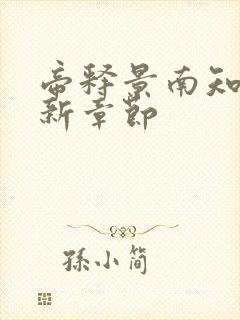 帝释景南知
新章节
孙小简